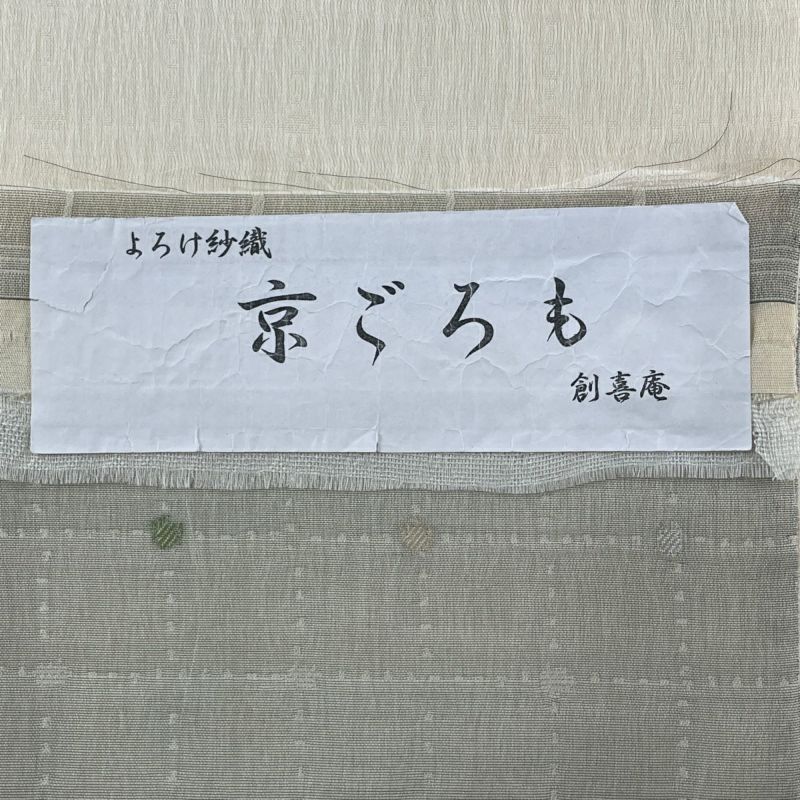 よろけ紗織
京ごろも
創喜庵